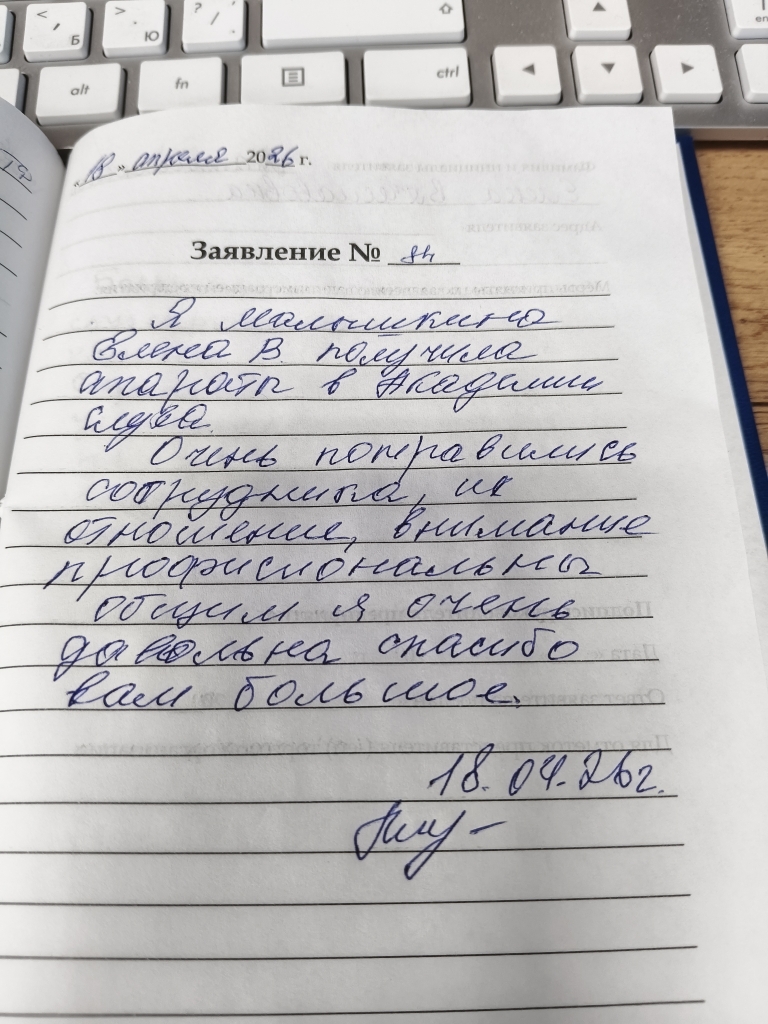 < , Б
> . Ю
? / .
alt
fn
ctrl
"18" апреля 2026 г.
Заявление № 84
Я Малышкина
Елена В. получила
апараты в Академии
слуха.
Очень понравились
сотрудника, их
отношение, внимание
профисиональны
общим я очень
давольна спасибо
вам большое.
18.04.26г.